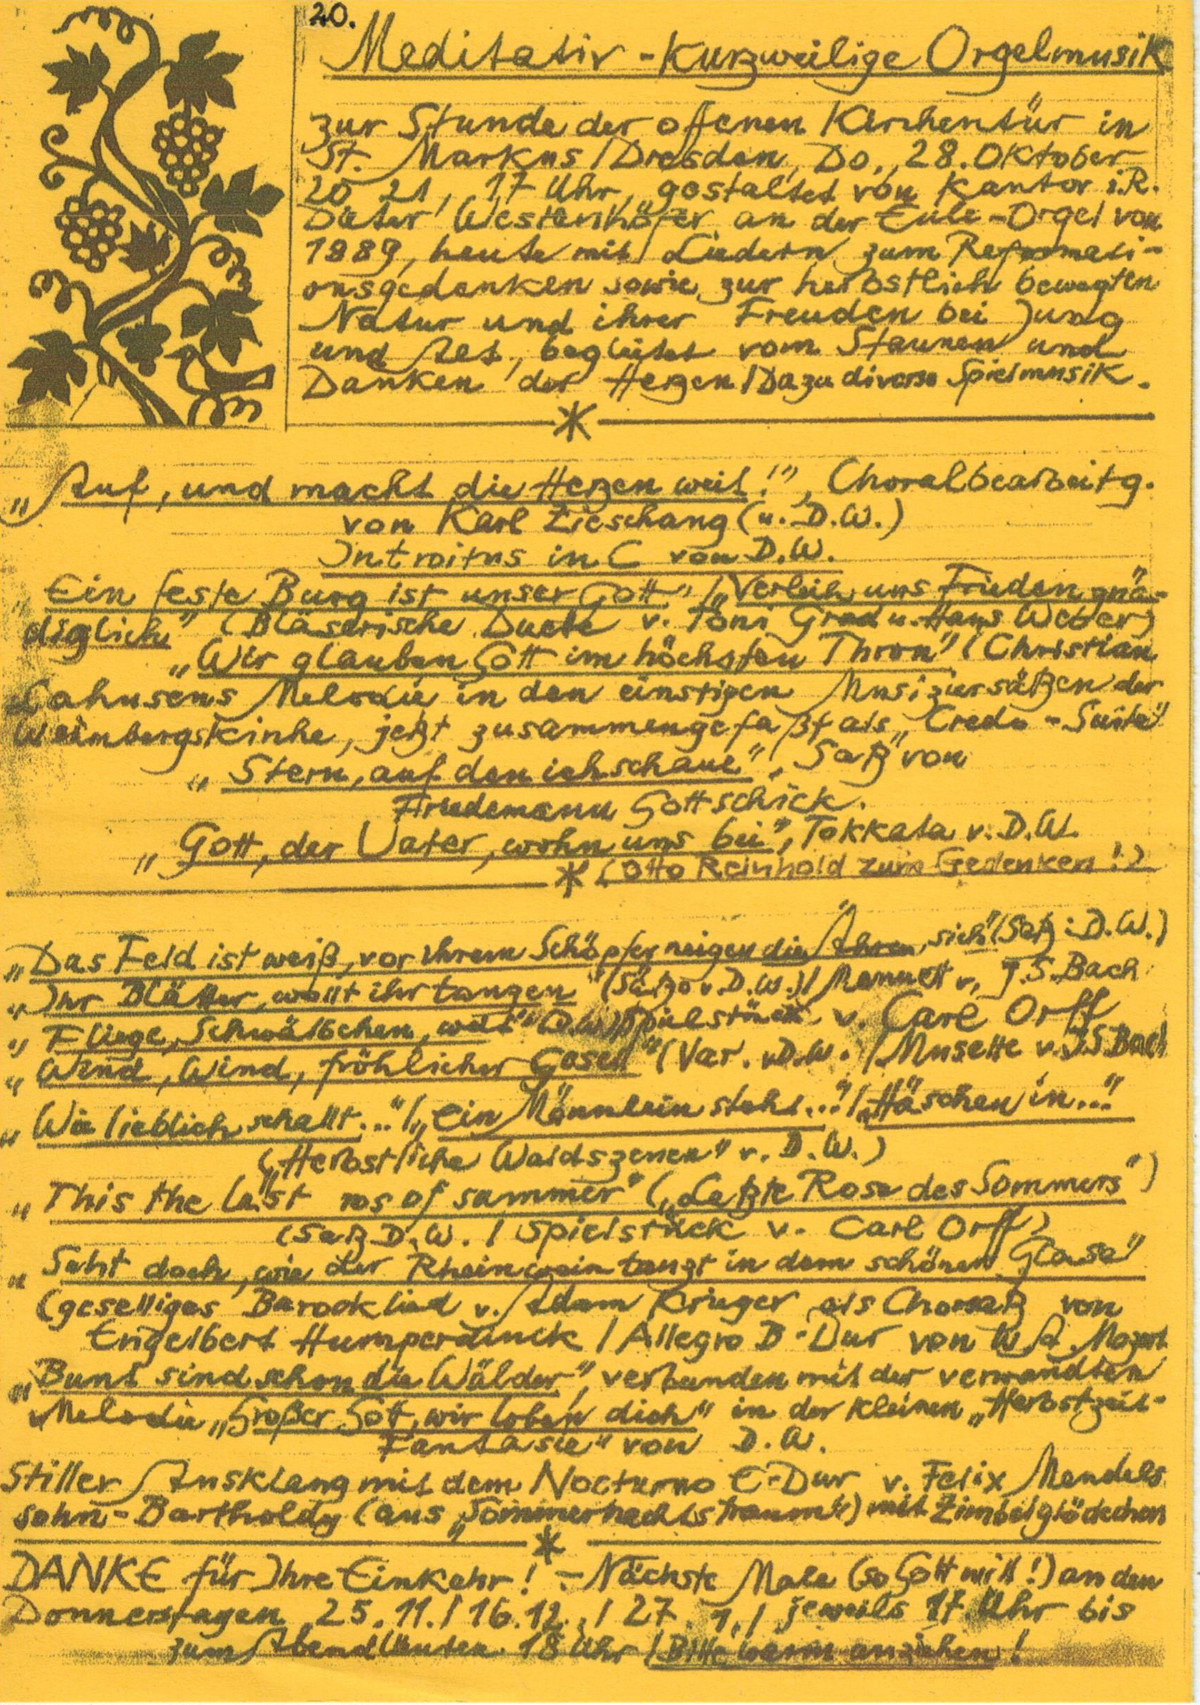 20.
Meditativ-Kurzweilige Orgelmusik
zur Stunde der offenen Kirchentür in
St. Markus/Dresden, Do., 28. Oktober
2021, 17 Uhr, gestaltet von Kantor i.R.
Dieter Westenhöfer an der Eule-Orgel von
1989, heute mit Liedern zum Reformati-
onsgedenken sowie zur herbstlich bewegten
Natur und ihrer Freuden bei Jung
und Alt, begleitet vom Staunen und
Danken der Herzen/Dazu diverse Spielmusik.
*
„Auf, und macht die Herzen weit!", Choralbearbeitg.
von Karl Zieschang (u. D.W.)
Introitus in C von D.W.
„Ein feste Burg ist unser Gott"/„Verleih uns Frieden gnä-
diglich" (Bläserische Duette v. Toni Grad u. Hans Weber)
„Wir glauben Gott im höchsten Thron" (Christian
Lahusens Melodie in den einstigen Musiziersätzen der
Weinbergskirche, jetzt zusammengefaßt als „Credo-Suite"
„Stern, auf den ich schaue", Satz von
Friedemann Gottschick.
„Gott, der Vater, wohn uns bei", Tokkata v. D.W.
* (Otto Reinhold zum Gedenken!)
„Das Feld ist weiß, vor ihrem Schöpfer neigen die Ähren sich" (Satz: D.W.)
„Ihr Blätter, wollt ihr tanzen" (Sätze v. D.W.)/Menuett v. J.S. Bach
„Fliege, Schwälbchen, weit" (D.W.)/Spielstück v. Carl Orff
„Wind, Wind, fröhlicher Gesell" (Var. v. D.W./Musette v. J.S. Bach
„Wie lieblich schallt..."/„Ein Männlein steht..."/„Häschen in..."
(„Herbstliche Waldszenen" v. D.W.)
„This the last ros of sammer" („Letzte Rose des Sommers")
(Satz D.W. / Spielstück v. Carl Orff)
„Seht doch, wie der Rheinwein tanzt in dem schönen Glase"
(geselliges Barocklied v. Adam Krieger als Chorsatz von
Engelbert Humperdinck / Allegro B-Dur von W.A. Mozart
„Bunt sind schon die Wälder", verbunden mit der verwandten
Melodie „Großer Gott, wir loben dich" in der kleinen „Herbstzeit-
Fantasie" von D.W.
Stiller Ausklang mit dem Nocturno E-Dur v. Felix Mendels
sohn-Bartholdy (aus „Sommernachtstraum") mit Zimbelglöckchen
*
DANKE für Ihre Einkehr! - Nächste Male (so Gott will!) an den
Donnerstagen 25.11./16.12./27.1./ jeweils 17 Uhr bis
zum Abendläuten 18 Uhr/Bitte warm anziehen!